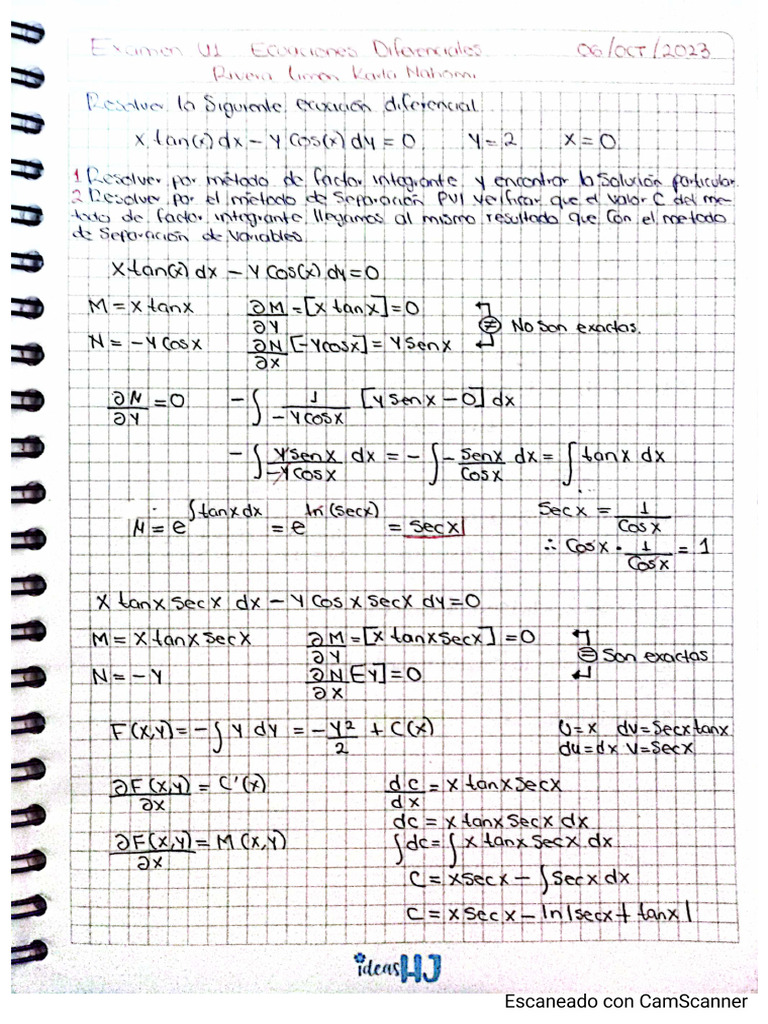 Examen U1 Ecuaciones Diferenciales 06/OCT/2023
Rivera Limon Karla Nahomi
Resolver la siguiente ecuación diferencial
x tan(x) dx - y cos(x) dy = 0 y = 2 x = 0
1 Resolver por método de factor integrante y encontrar la solución particular.
2 Resolver por el método de Separación PVI verificar que el valor C del me-
todo de factor integrante llegamos al mismo resultado que con el metodo
de Separación de variables.
x tan(x) dx - y cos(x) dy = 0
M = x tanx ∂M/∂y = [x tanx] = 0
≠ No son exactas.
N = -y cosx ∂N/∂x [-ycosx] = y senx
∂M/∂y = 0 -∫ 1/-ycosx [y senx - 0] dx
-∫ ysenx/-ycosx dx = -∫ -senx/cosx dx = ∫ tanx dx
M = e^∫tanxdx = e^ln(secx) = secx secx = 1/cosx
∴ cosx · 1/cosx = 1
x tanx secx dx - y cosx secx dy = 0
M = x tanx secx ∂M/∂y = [x tanx secx] = 0
= Son exactas
N = -y ∂N/∂x [-y] = 0
F(x,y) = -∫ y dy = -y²/2 + C(x) U=x dv=secx tanx
du=dx v=secx
∂F(x,y)/∂x = C'(x) dc/dx = x tanx secx
dc = x tanx secx dx
∂F(x,y)/∂x = M(x,y) ∫dc = ∫ x tanx secx dx
C = xsecx - ∫ secx dx
C = x secx - ln|secx + tanx|
ideas HJ
Escaneado con CamScanner